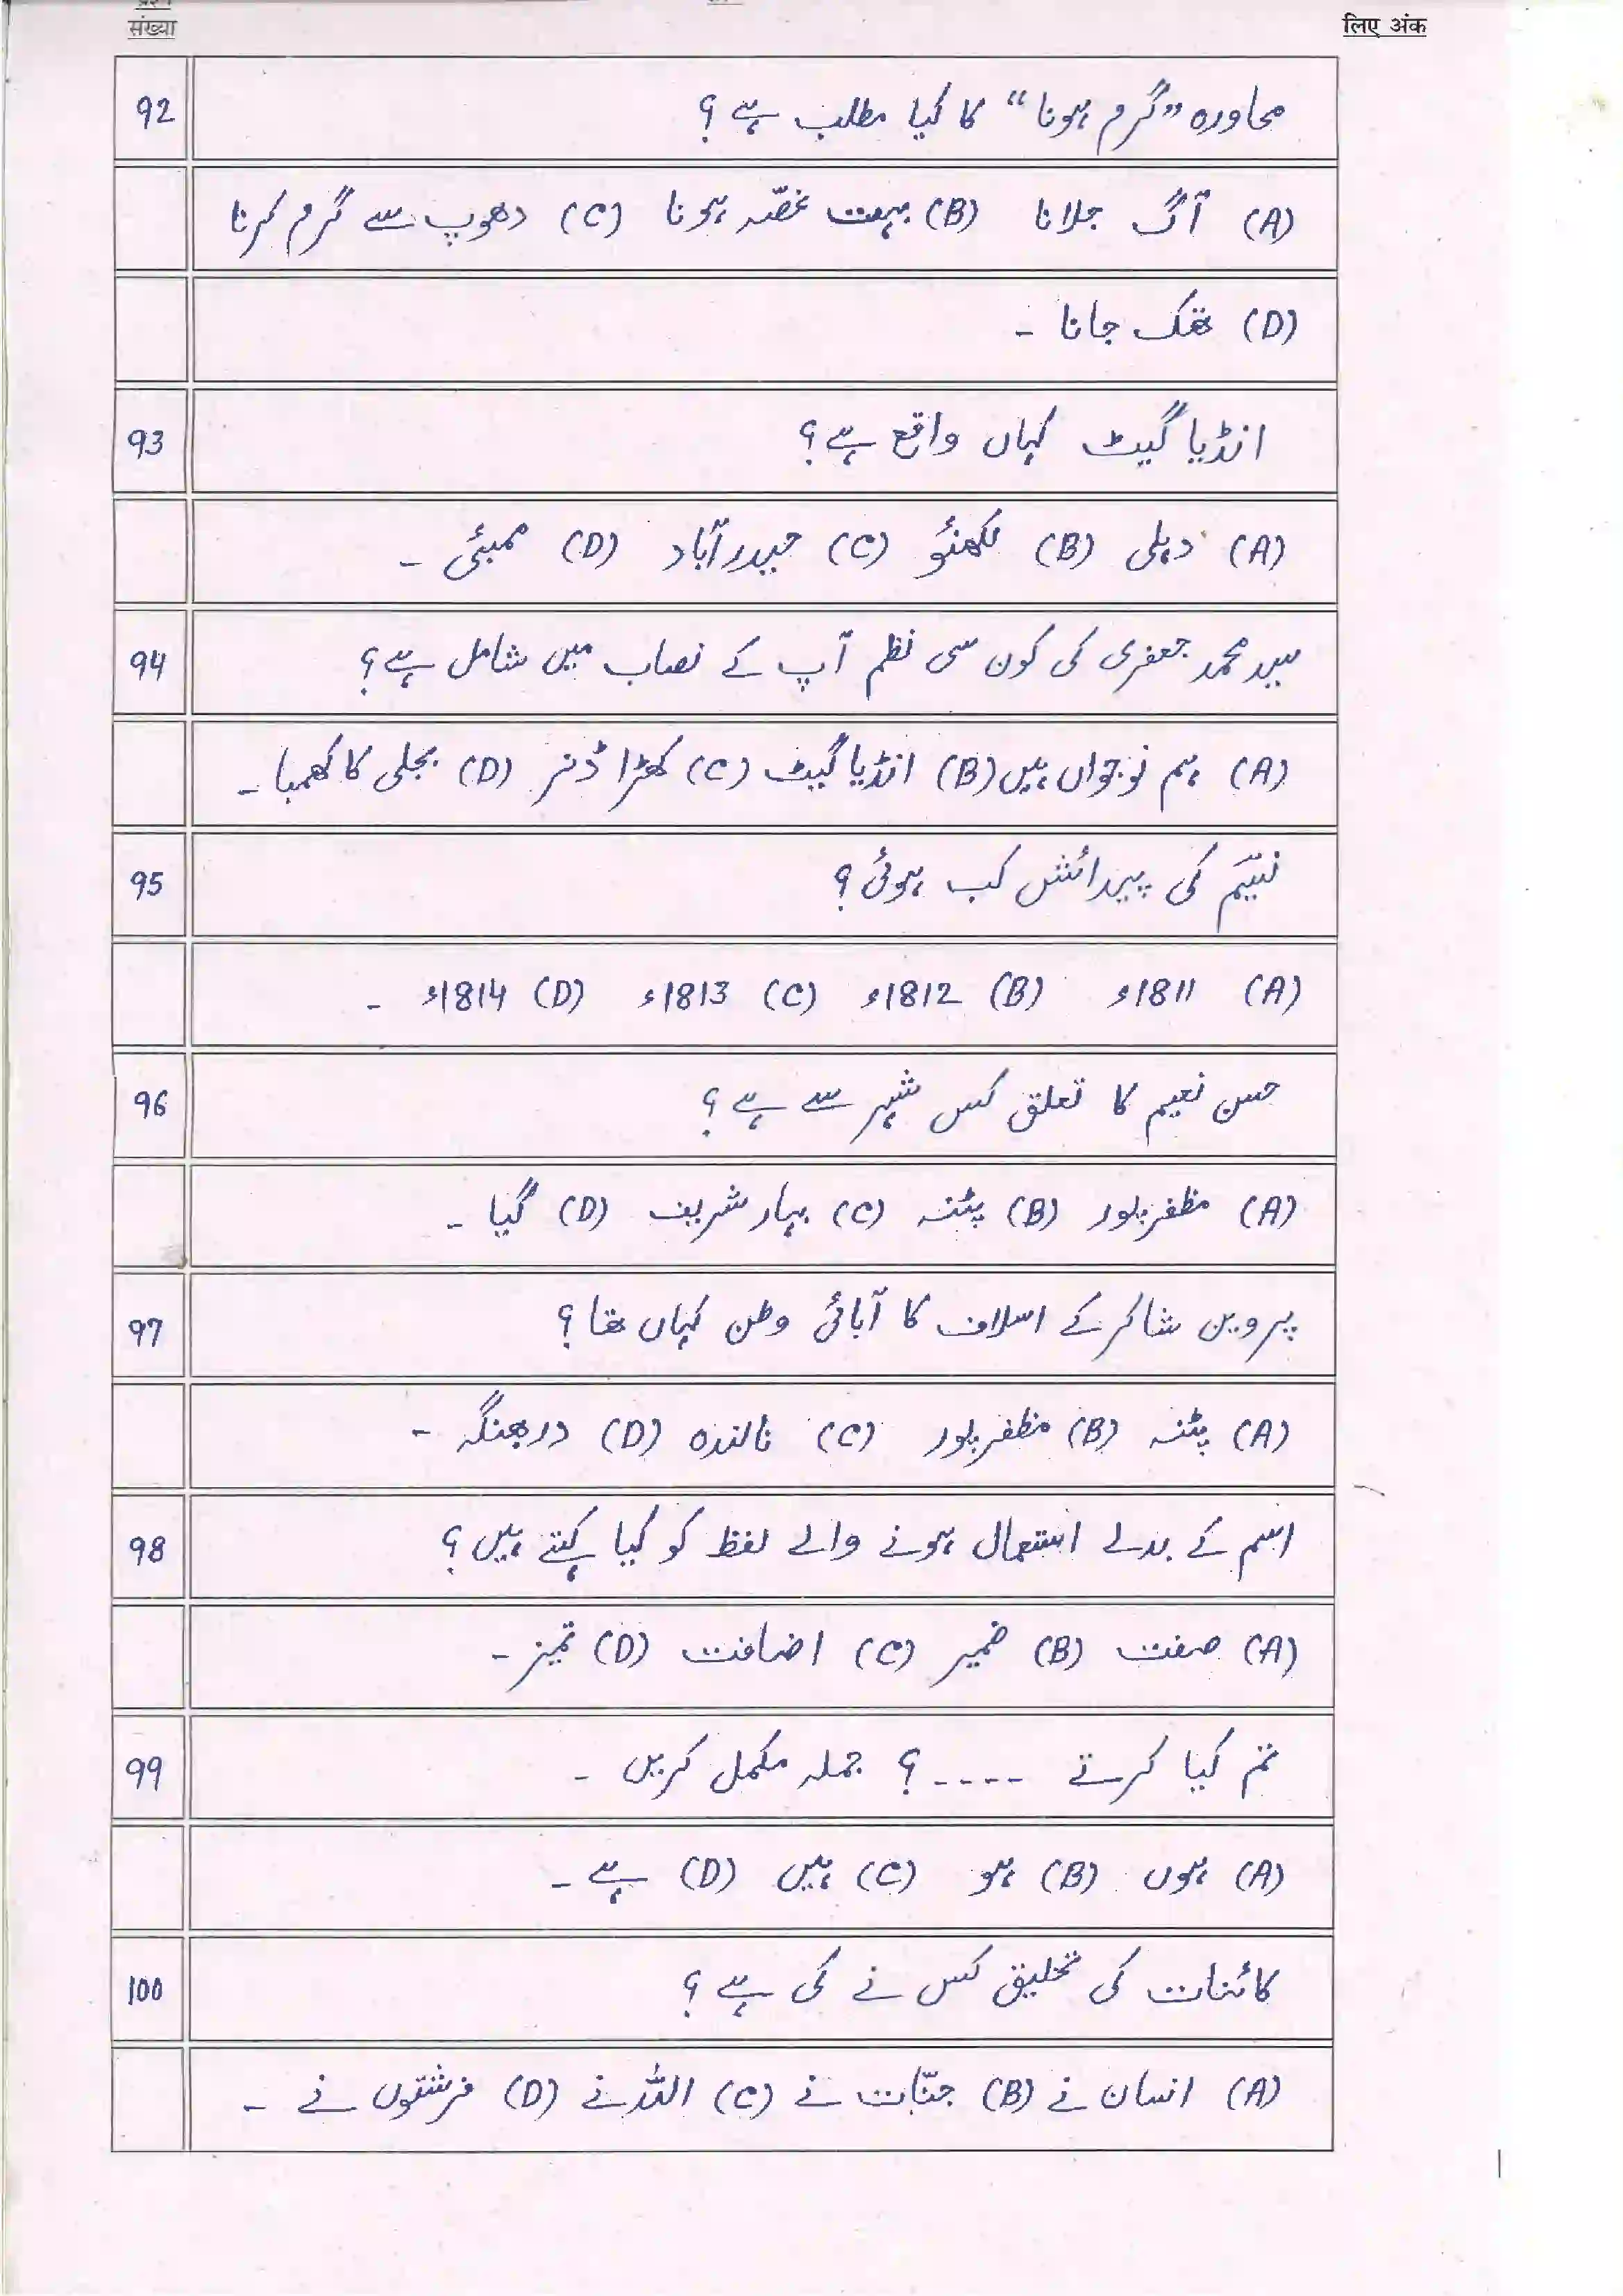 संख्या
लिए अंक
92
محاورہ ”گرم ہونا“ کا کیا مطلب ہے؟
(A) آگ جلانا (B) بہت غصّہ ہونا (C) دھوپ سے گرم کرنا
(D) تھک جانا ۔
93
انڈیا گیٹ کہاں واقع ہے؟
(A) دہلی (B) لکھنؤ (C) حیدرآباد (D) ممبئی ۔
94
سید محمد جعفری کی کون سی نظم آپ کے نصاب میں شامل ہے؟
(A) ہم نوجواں ہیں (B) انڈیا گیٹ (C) کھڑا ڈنر (D) بجلی کا کھمبا ۔
95
نسیّم کی پیدائش کب ہوئی؟
(A) 1811ء (B) 1812ء (C) 1813ء (D) 1814ء ۔
96
حسن نعیم کا تعلق کس شہر سے ہے؟
(A) مظفرپور (B) پٹنہ (C) بہار شریف (D) گیا ۔
97
پروین شاکر کے اسلاف کا آبائی وطن کہاں تھا؟
(A) پٹنہ (B) مظفرپور (C) نالندہ (D) دربھنگہ ۔
98
اسم کے بدلے استعمال ہونے والے لفظ کو کیا کہتے ہیں؟
(A) صفت (B) ضمیر (C) اضافت (D) تمیز ۔
99
تم کیا کرتے ----؟ جملہ مکمل کریں ۔
(A) ہوں (B) ہو (C) ہیں (D) ہے ۔
100
کائنات کی تخلیق کس نے کی ہے؟
(A) انسان نے (B) جنّات نے (C) اللہ نے (D) فرشتوں نے ۔